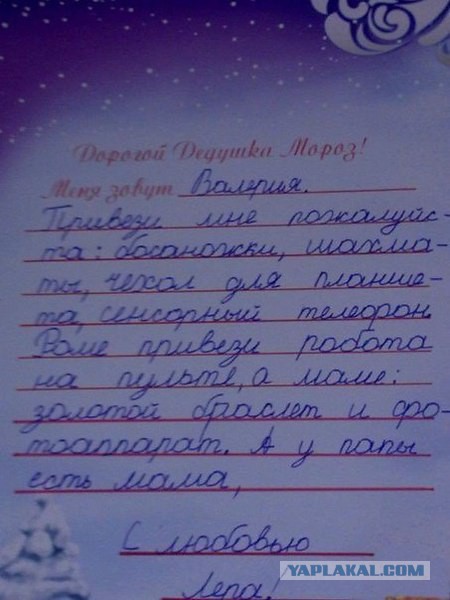 Дорогой Дедушка Мороз!
Меня зовут Валерия.
Привези мне пожалуйс-
та: босаножки, шахма-
ты, чехол для планше-
та, сенсорный телефон.
Роме привези робота
на пульте, а маме:
золотой браслет и фо-
тоаппарат. А у папы
есть мама,
С любовью
Лера!
YAPLAKAL.COM